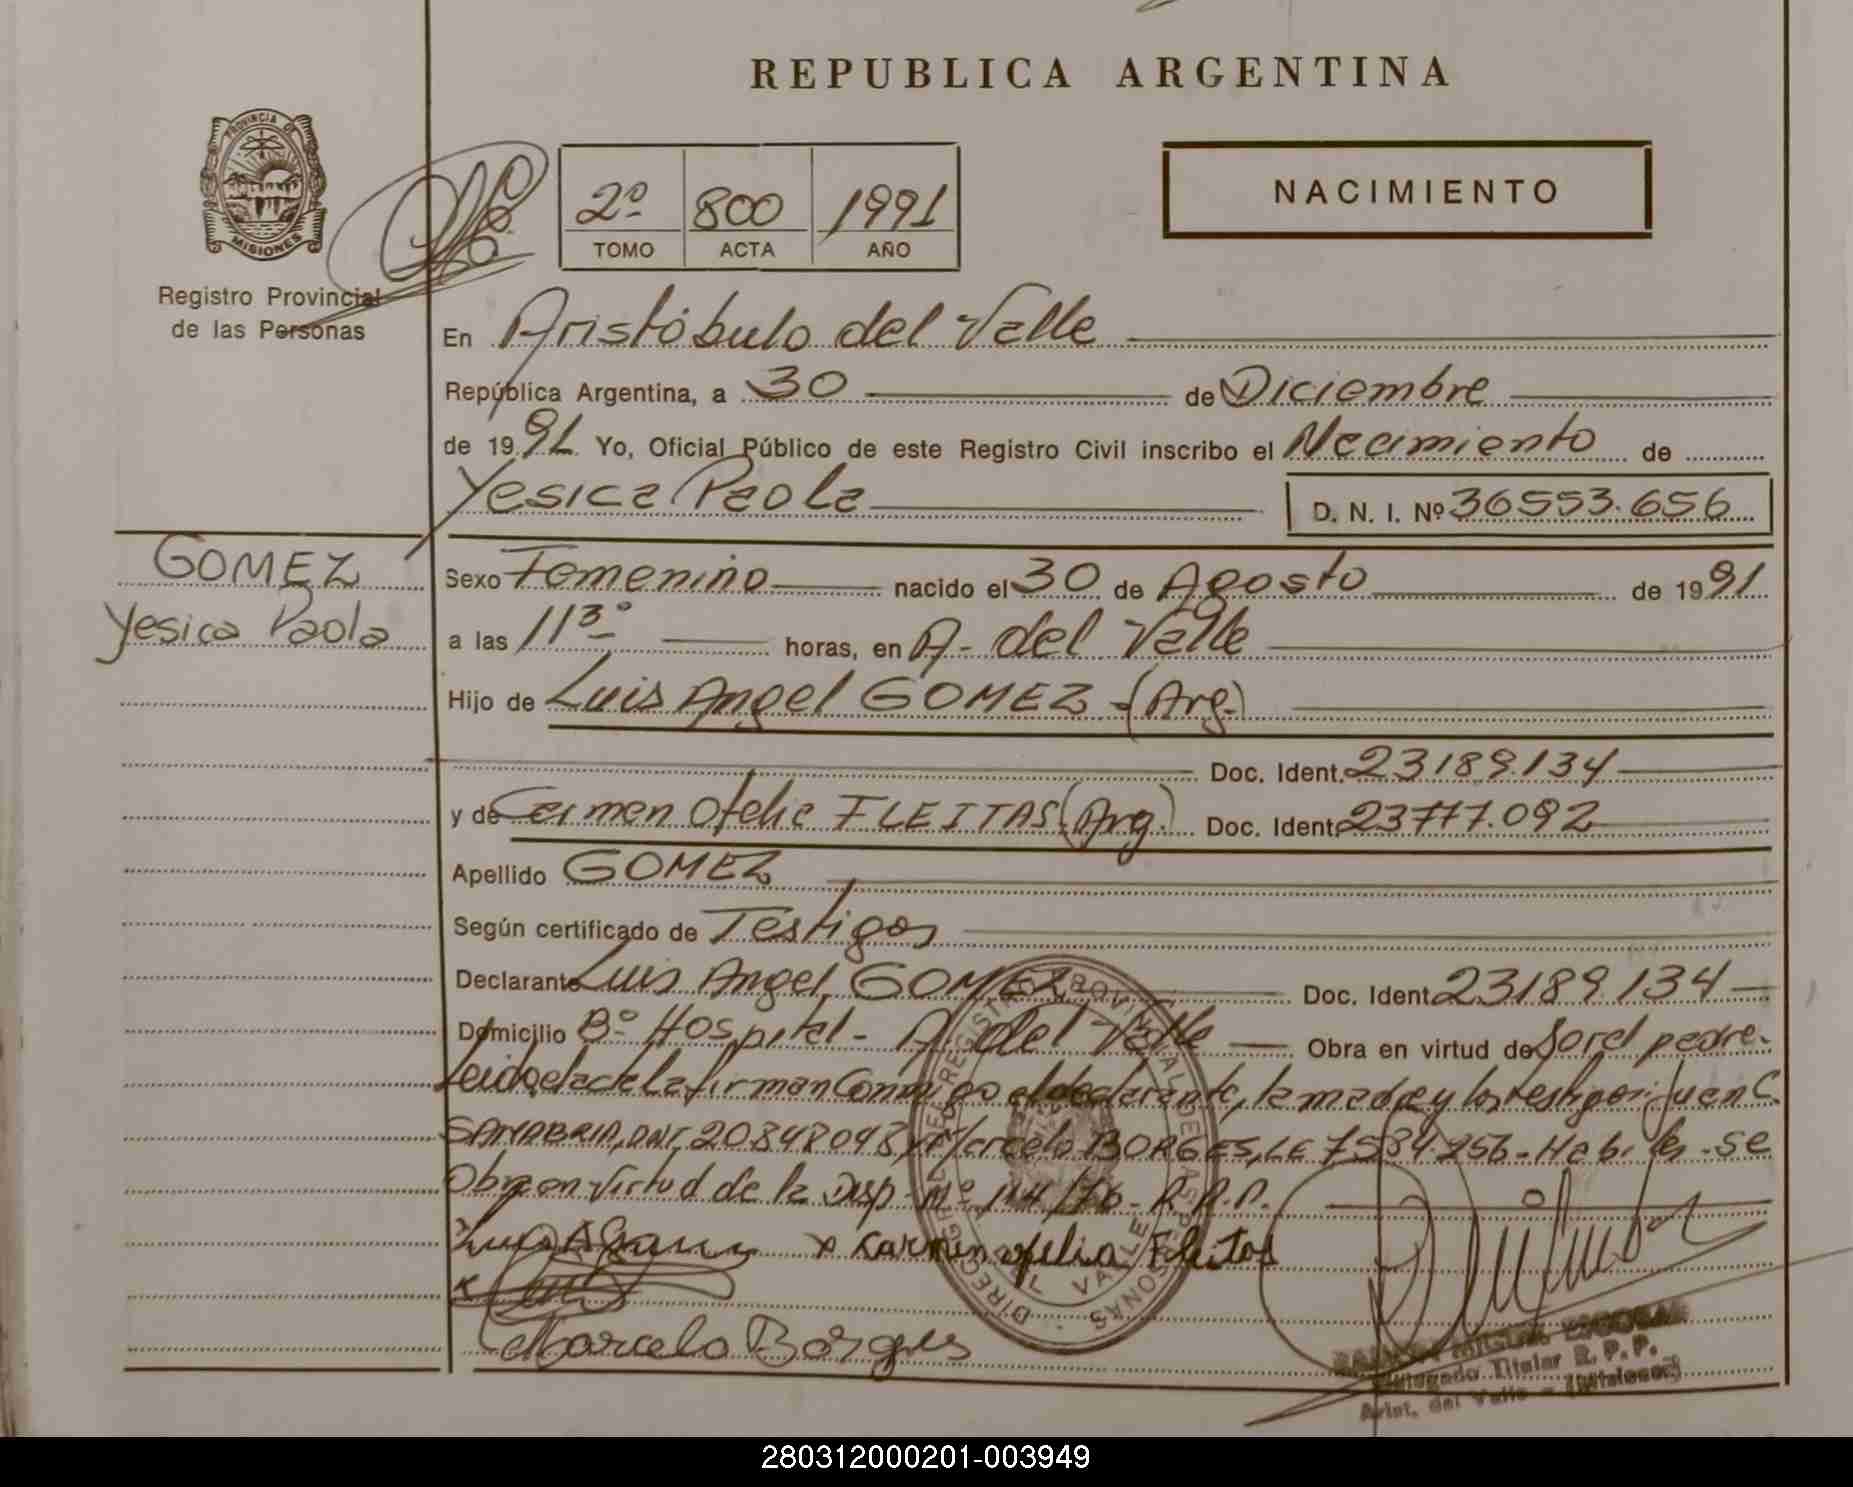 REPUBLICA ARGENTINA
PROVINCIA DE
MISIONES
Registro Provincial
de las Personas
2º 800 1991
TOMO ACTA AÑO
NACIMIENTO
En Aristóbulo del Valle
República Argentina, a 30 de Diciembre
de 1991 Yo, Oficial Público de este Registro Civil inscribo el Nacimiento de
Yesica Paola D. N. I. Nº 36553.656
GOMEZ
Yesica Paola
Sexo Femenino nacido el 30 de Agosto de 1991
a las 11³º horas, en A. del Valle
Hijo de Luis Angel GOMEZ -(Arg.)
Doc. Ident. 23189.134
y de Carmen Ofelia FLEITAS (Arg.) Doc. Ident. 23777.092
Apellido GOMEZ
Según certificado de Testigos
Declarante Luis Angel GOMEZ Doc. Ident. 23189.134
Domicilio Bº Hospital - A. del Valle Obra en virtud de Ser el padre.
Leida el acta la firman Conmigo el declarante, la madre y los testigos: Juan C.
SANABRIA, DNI. 20.848.048 y Marcelo BORGES, LE 7584.256 - Habiles - Se
Obra en virtud de la Disp. Nº 114/76 - R.P.P.
x Carmen ofelia Fleitas
Marcelo Borges
RAMON MIGUEL ESCOBAR
Delegado Titular R. P. P.
Arist. del Valle - (Misiones)
280312000201-003949